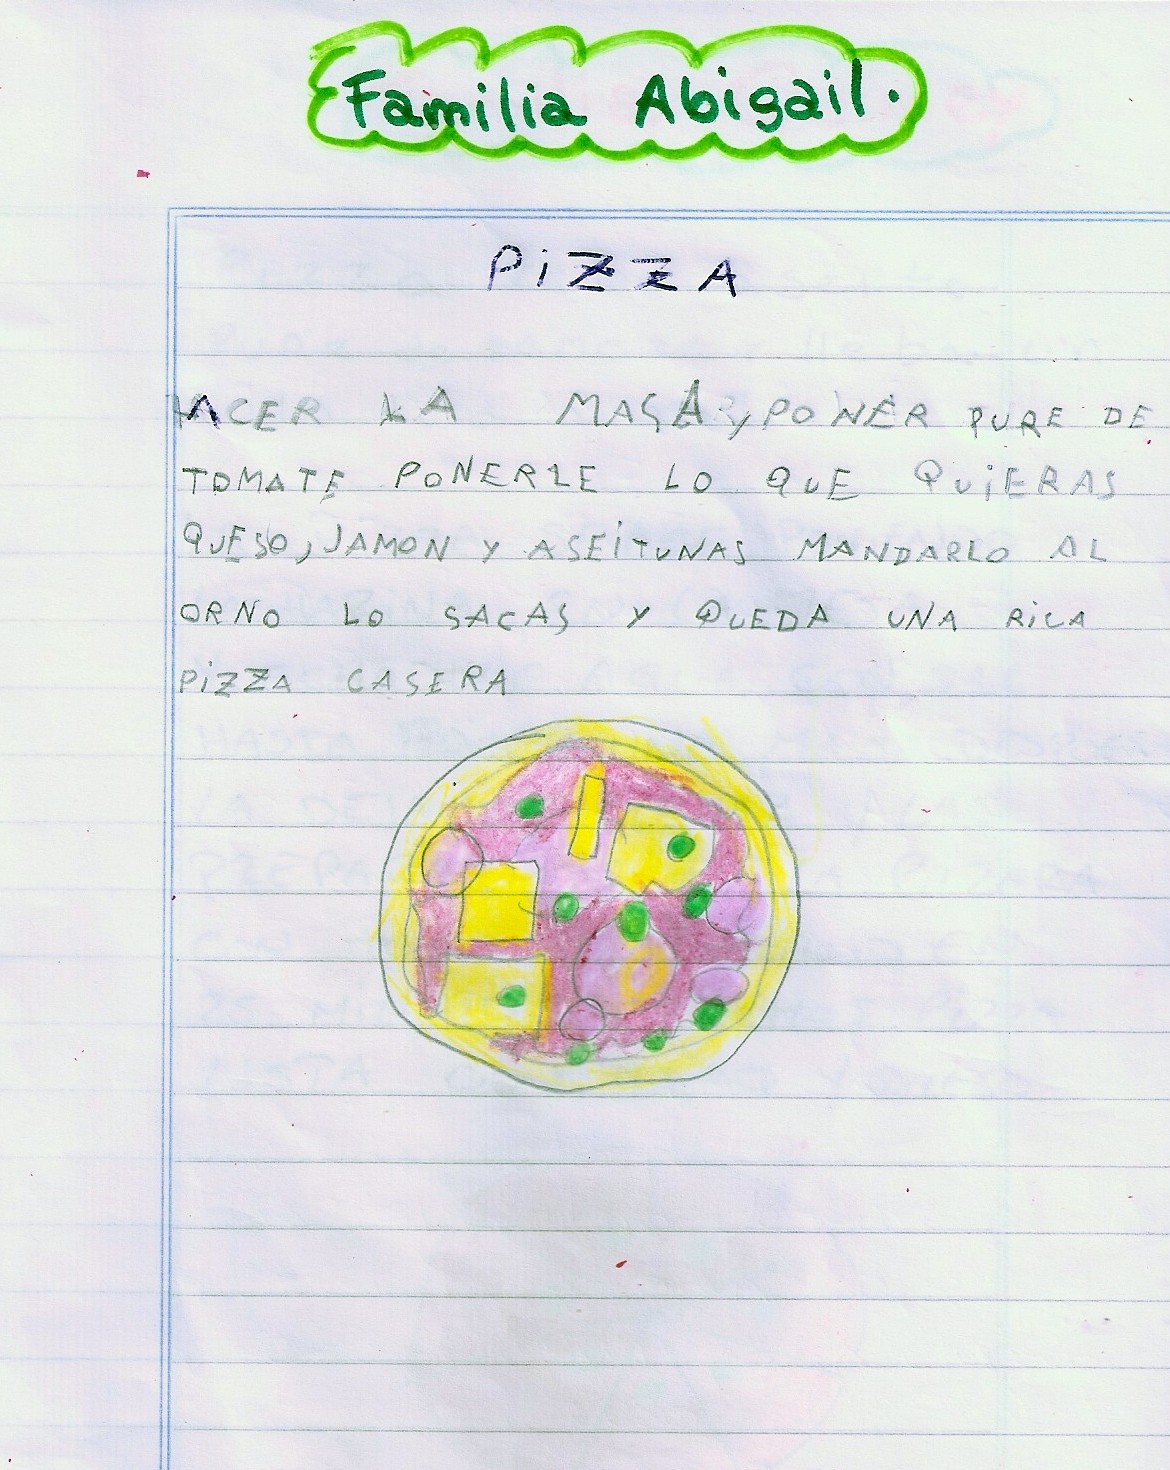 Familia Abigail.
PiZZA
HACER LA MASA, PONER PURE DE
TOMATE PONERLE LO QUE QUiERAS
QUESO, JAMON Y ASEiTUNAS MANDARLO AL
ORNO LO SACAS Y QUEDA UNA RiCA
PiZZA CASERA